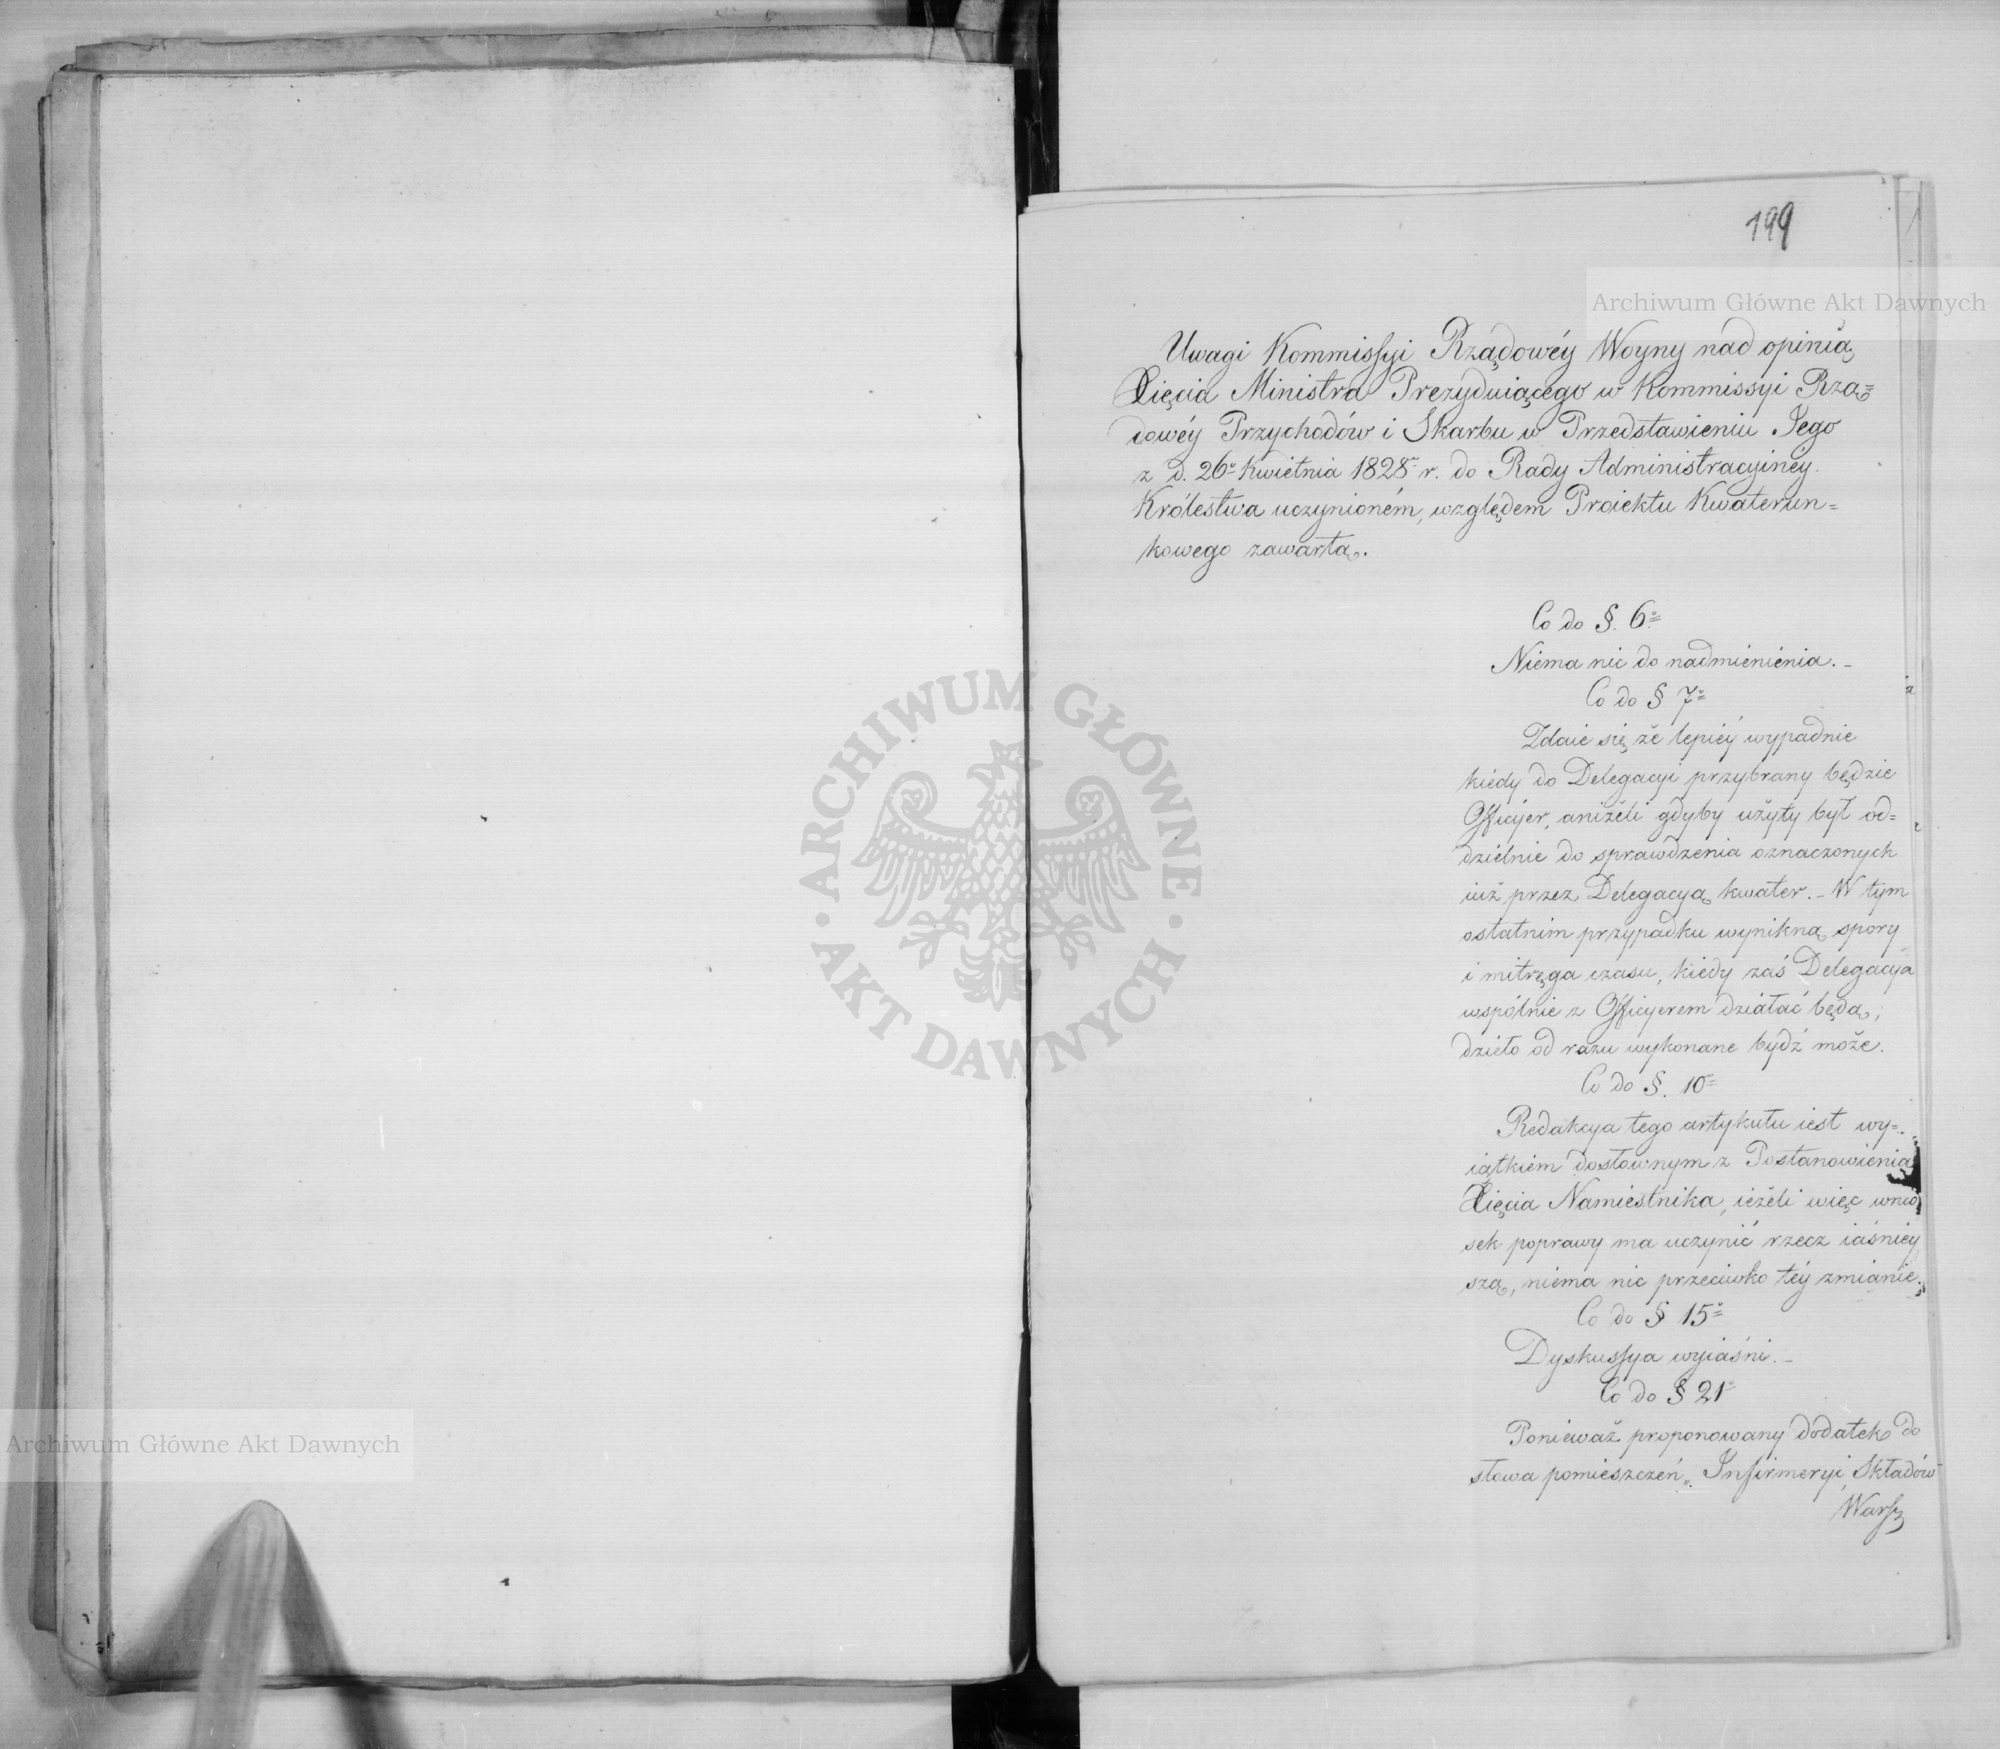 199
Archiwum Główne Akt Dawnych
Uwagi Kommissyi Rządowéy Woyny nad opinią
Xięcia Ministra Prezyduiącego w Kommissyi Rzą=
dowéy Przychodów i Skarbu w Przedstawieniu Jego
z d. 26° Kwietnia 1828 r. do Rady Administracyinéy
Królestwa uczynioném, względem Proiektu Kwaterun=
kowego zawartą.
Co do §. 6°
Niéma nic do nadmiénienia. –
Co do § 7°
Zdaie się że lepiéy wypadnie
kiédy do Delegacyi przybrany będzie
Officyer, aniżeli gdyby użyty był od=
dzielnie do sprawdzenia oznaczonych
iuż przez Delegacyą kwater. – W tym
ostatnim przypadku wynikną spory
i mitręga czasu, kiédy zaś Delegacya
wspólnie z Officyerem działać będą,
dzieło od razu wykonane bydź może.
Co do §. 10
Redakcya tego artykułu iest wy=
iątkiem dosłownym z Postanowienia
Xięcia Namiestnika, ieżeli więc wnio
sek poprawy ma uczynić rzecz iaśniéy
szą, niéma nic przeciwko téy zmianie.
Co do § 15°
Dyskussya wyiaśni. –
Co do § 21
Ponieważ proponowany dodatek do
słowa pomieszczeń „ Infirmeryi, Składów
Warsz
ARCHIWUM GŁÓWNE · AKT DAWNYCH ·
Archiwum Główne Akt Dawnych